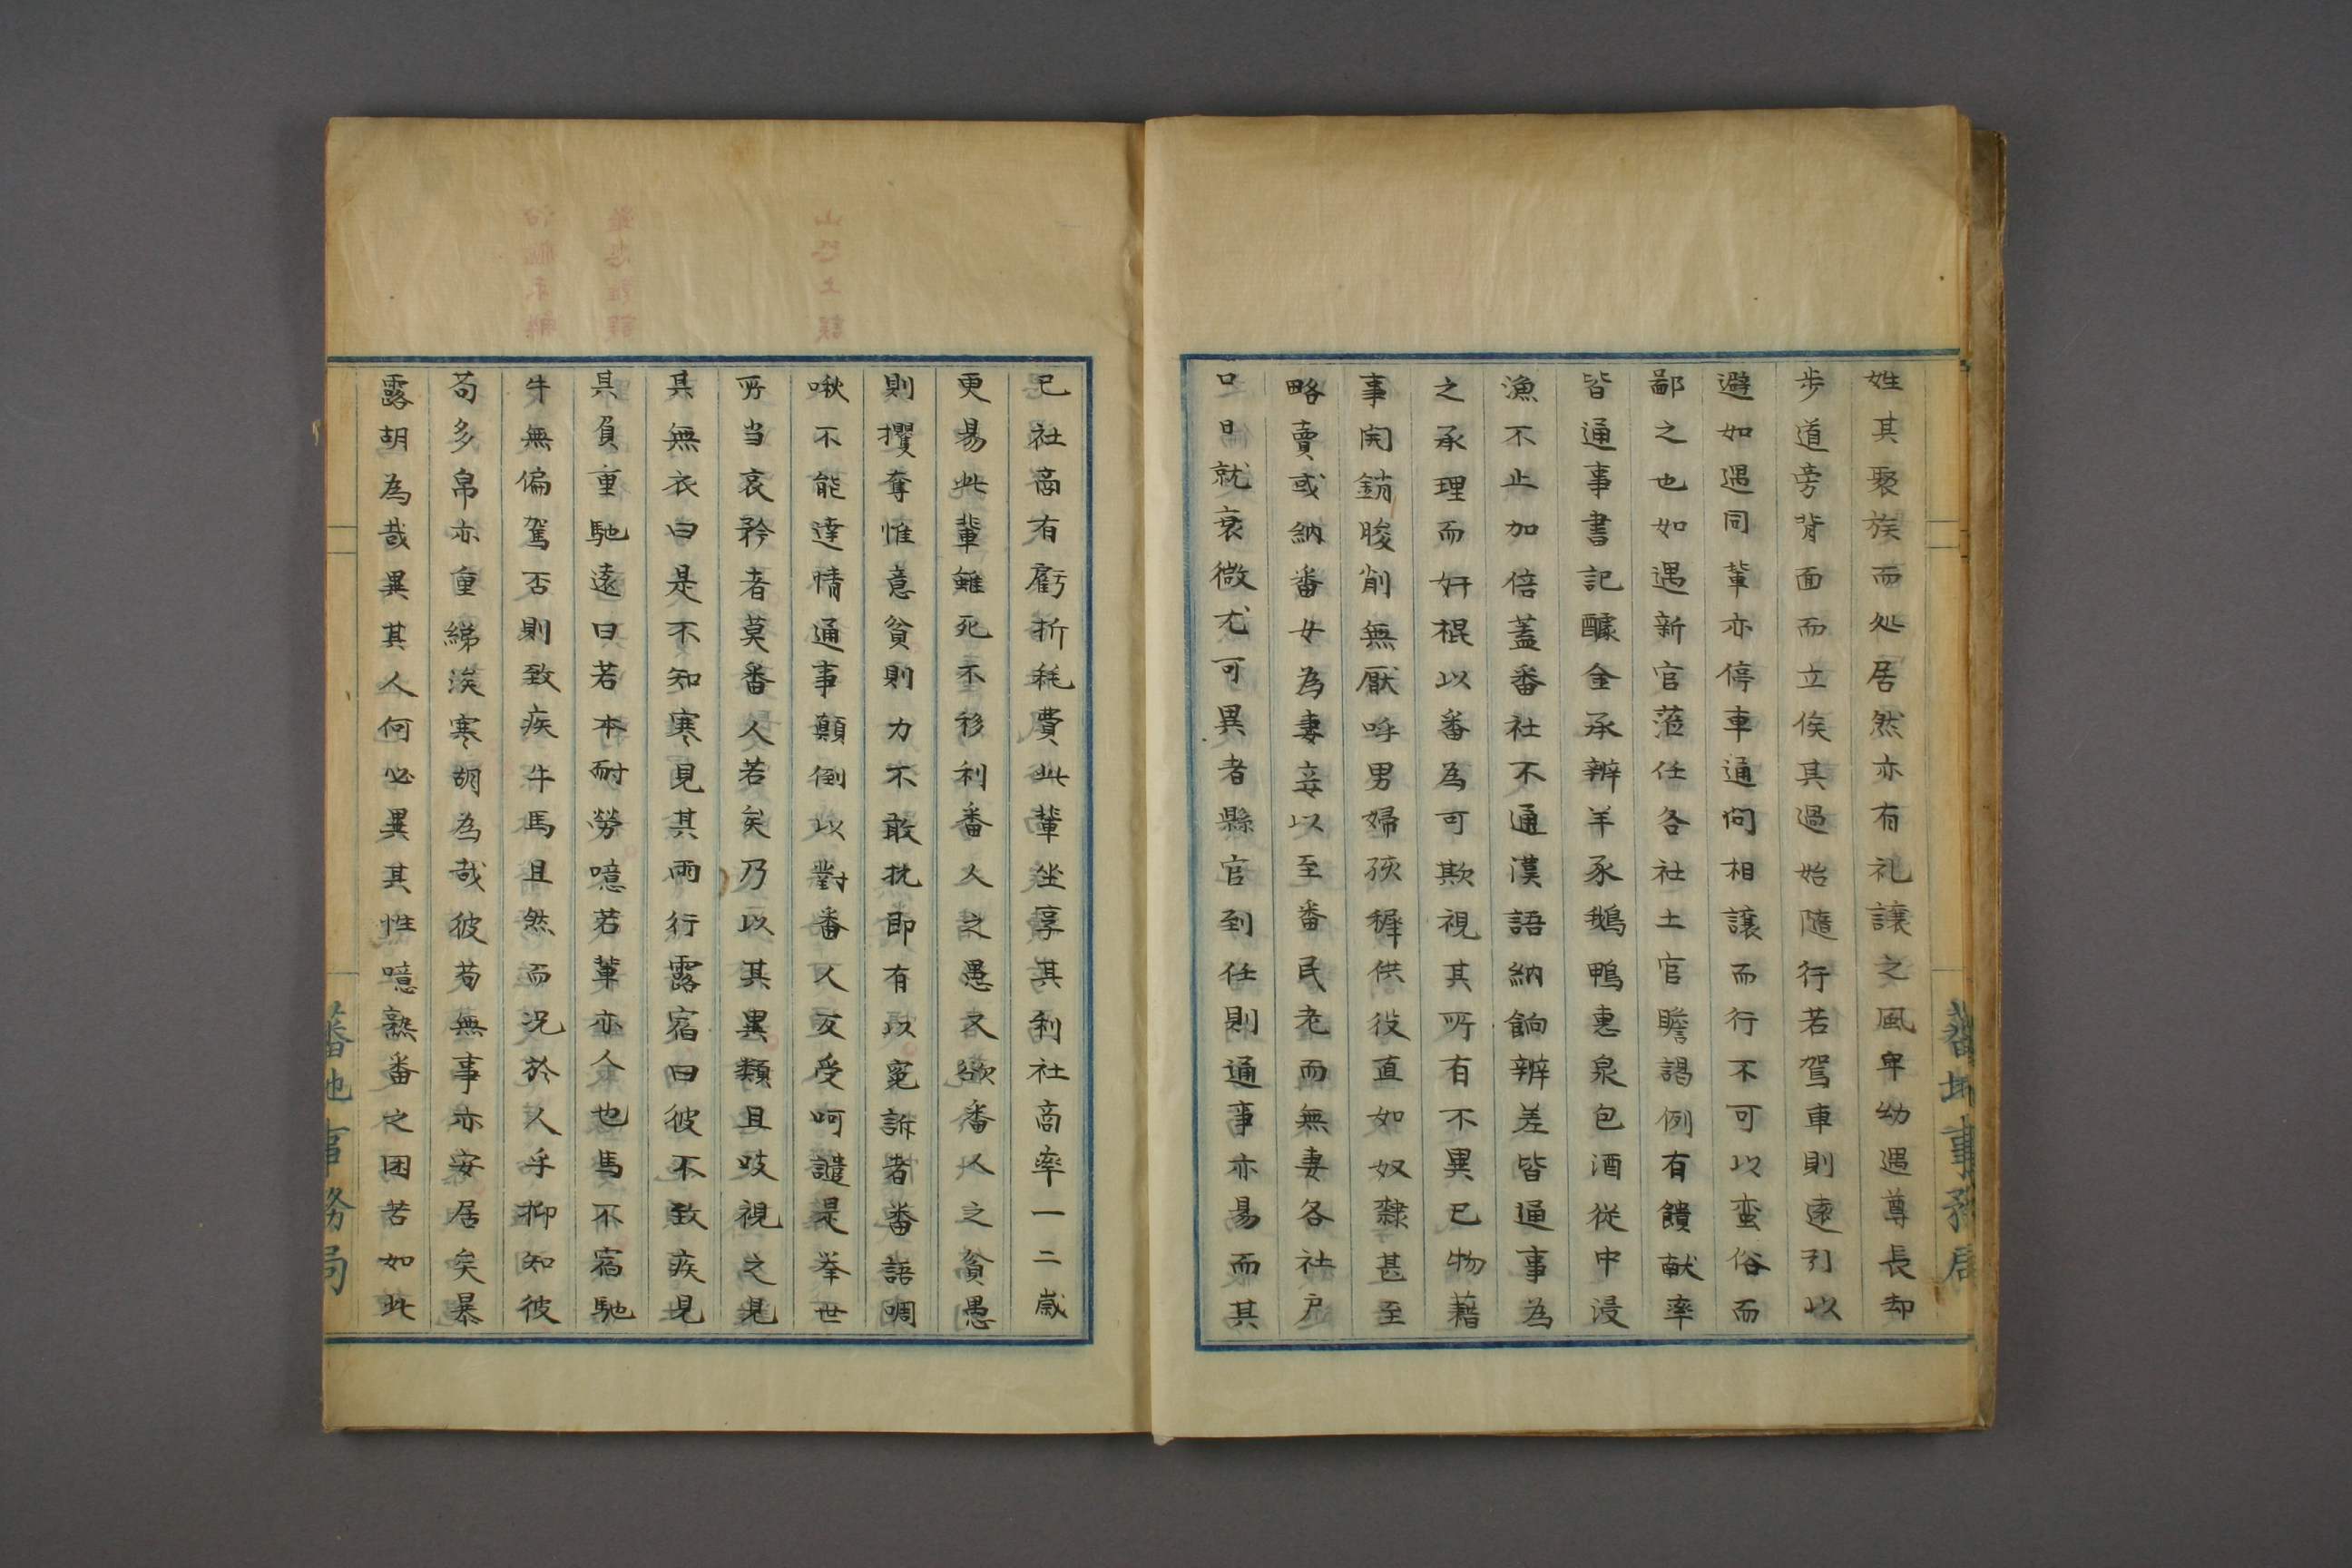 姓其聚族而処居然亦有礼譲之風卑幼遇尊長却
歩道旁背面而立俟其過始随行若駕車則遠引以
避如遇同輩亦停車通問相譲而行不可以蛮俗而
鄙之也如遇新官蒞任各社土官瞻謁例有饋献率
皆通事書記醵金承辨羊豕鵝鴨恵泉包酒従中浸
漁不止加倍蓋番社不通漢語納餉辨差皆通事為
之承理而奸棍以番為可欺視其所有不異已物藉
事開銷朘削無厭呼男婦孩穉供役直如奴隷甚至
略賣或納番女為妻妾以至番民老而無妻各社戸
口日就衰微尤可異者縣官到任則通事亦易而其
已社商有虧折耗費此輩坐享其利社商率一二歳
更易此輩雖死不移利番人之愚又欲番人之貧愚
則攫奪惟意貧則力不敢抗即有以寃訴者番語啁
啾不能達情通事顛倒以對番人反受呵譴是挙世
所当哀矜者莫番人若矣乃以其異類且歧視之見
其無衣曰是不知寒見其雨行露宿曰彼不致疾見
其負重馳遠曰若本耐労噫若輩亦人也馬不宿馳
牛無偏駕否則致疾牛馬且然而况於人乎抑知彼
苟多帛亦重綈涘寒胡為哉彼苟無事亦安居矣暴
露胡為哉異其人何必異其性噫熟番之困苦如此
蕃地事務局
蕃地事務局